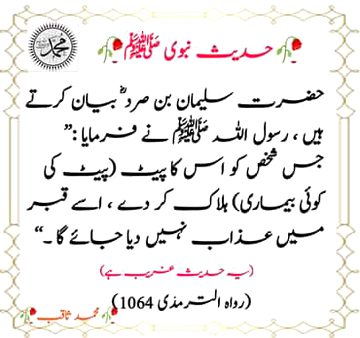 حدیث نبوی ﷺ
حضرت سلیمان بن صردؓ بیان کرتے
ہیں ، رسول اللہ ﷺ نے فرمایا :”
جس شخص کو اس کا پیٹ (پیٹ کی
کوئی بیماری) ہلاک کر دے ، اسے قبر
میں عذاب نہیں دیا جائے گا ۔“
(یہ حدیث غریب ہے)
(رواہ الترمذی 1064)
محمد ثاقب